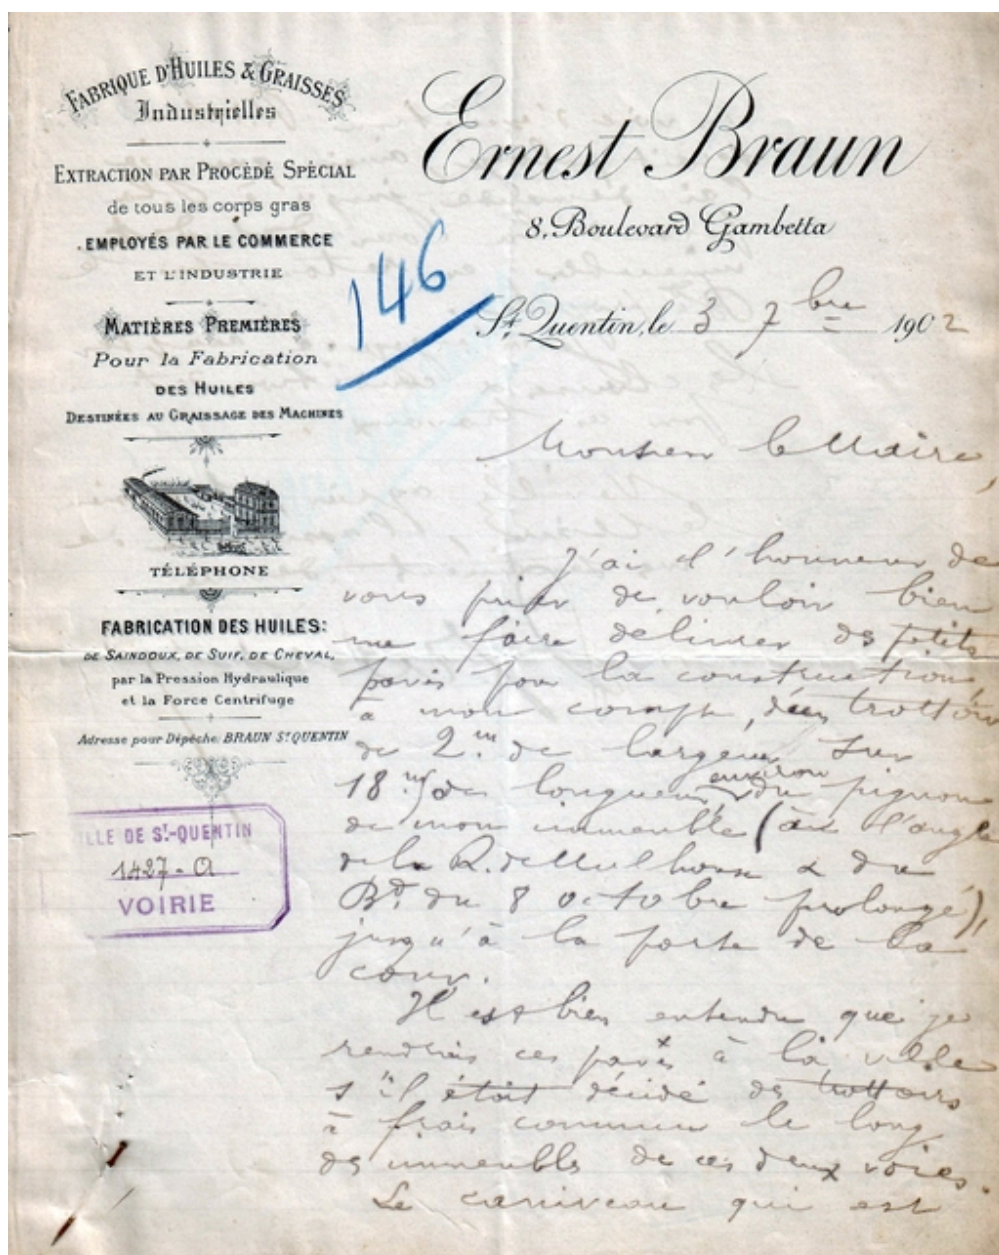 FABRIQUE D'HUILES & GRAISSES
Industrielles
EXTRACTION PAR PROCÉDÉ SPÉCIAL
de tous les corps gras
EMPLOYÉS PAR LE COMMERCE
ET L'INDUSTRIE
MATIÈRES PREMIÈRES
Pour la Fabrication
DES HUILES
DESTINÉES AU GRAISSAGE DES MACHINES
TÉLÉPHONE
FABRICATION DES HUILES:
DE SAINDOUX, DE SUIF, DE CHEVAL,
par la Pression Hydraulique
et la Force Centrifuge
Adresse pour Dépêche: BRAUN ST QUENTIN
VILLE DE ST-QUENTIN
1427-A
VOIRIE
Ernest Braun
8, Boulevard Gambetta
146
St Quentin, le 3 7bre 1902
Monsieur le Maire,
J'ai l'honneur de
vous prier de vouloir bien
me faire délivrer des petits
pavés pour la construction
à mon compte, d'un trottoir
de 2m de largeur sur
18m de longueur environ du pignon
de mon immeuble (à l'angle
de la R. de Mulhouse & du
Bd. du 8 octobre prolongé),
jusqu'à la porte de la
cour.
Il est bien entendu que je
rendrais ces pavés à la ville
s'il était décidé des trottoirs
à frais commun le long
des immeubles de ces deux voies.
Le caniveau qui est